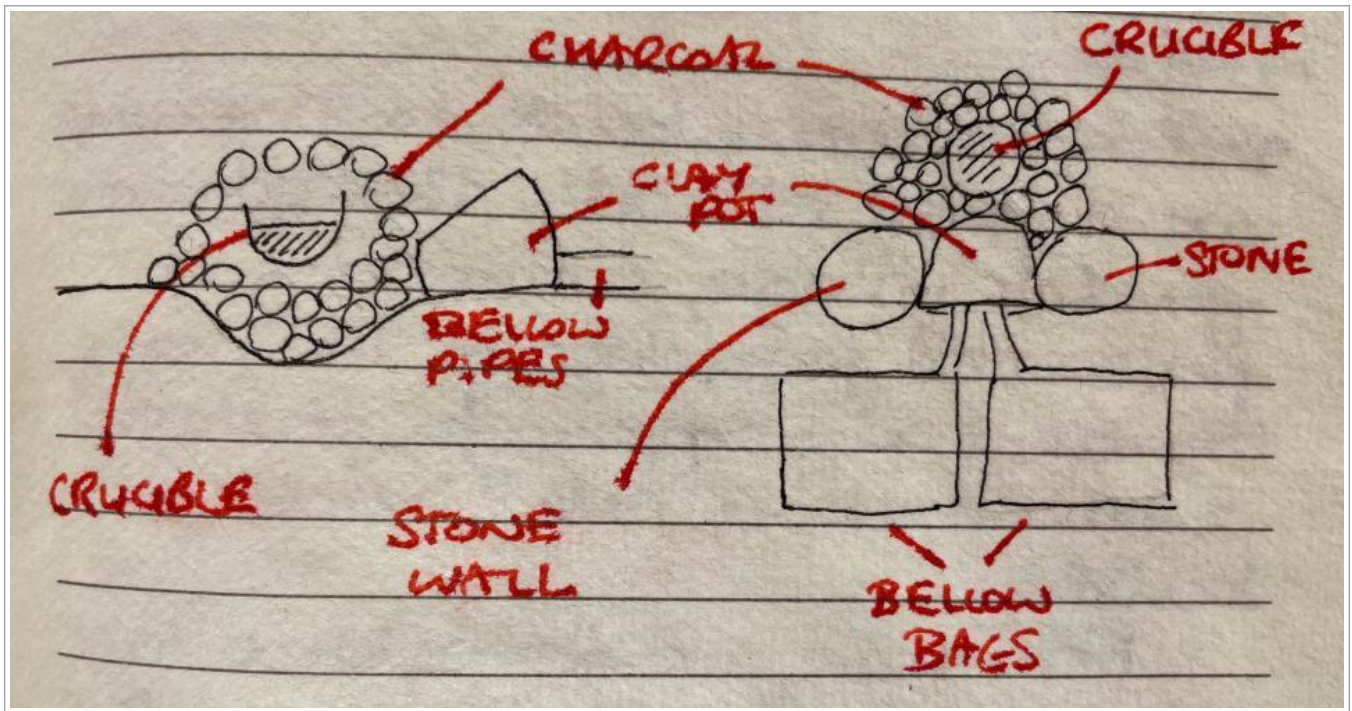 CHARCOAL
CRUCIBLE
CLAY
POT
STONE
BELLOW
PIPES
CRUCIBLE
STONE
WALL
BELLOW
BAGS